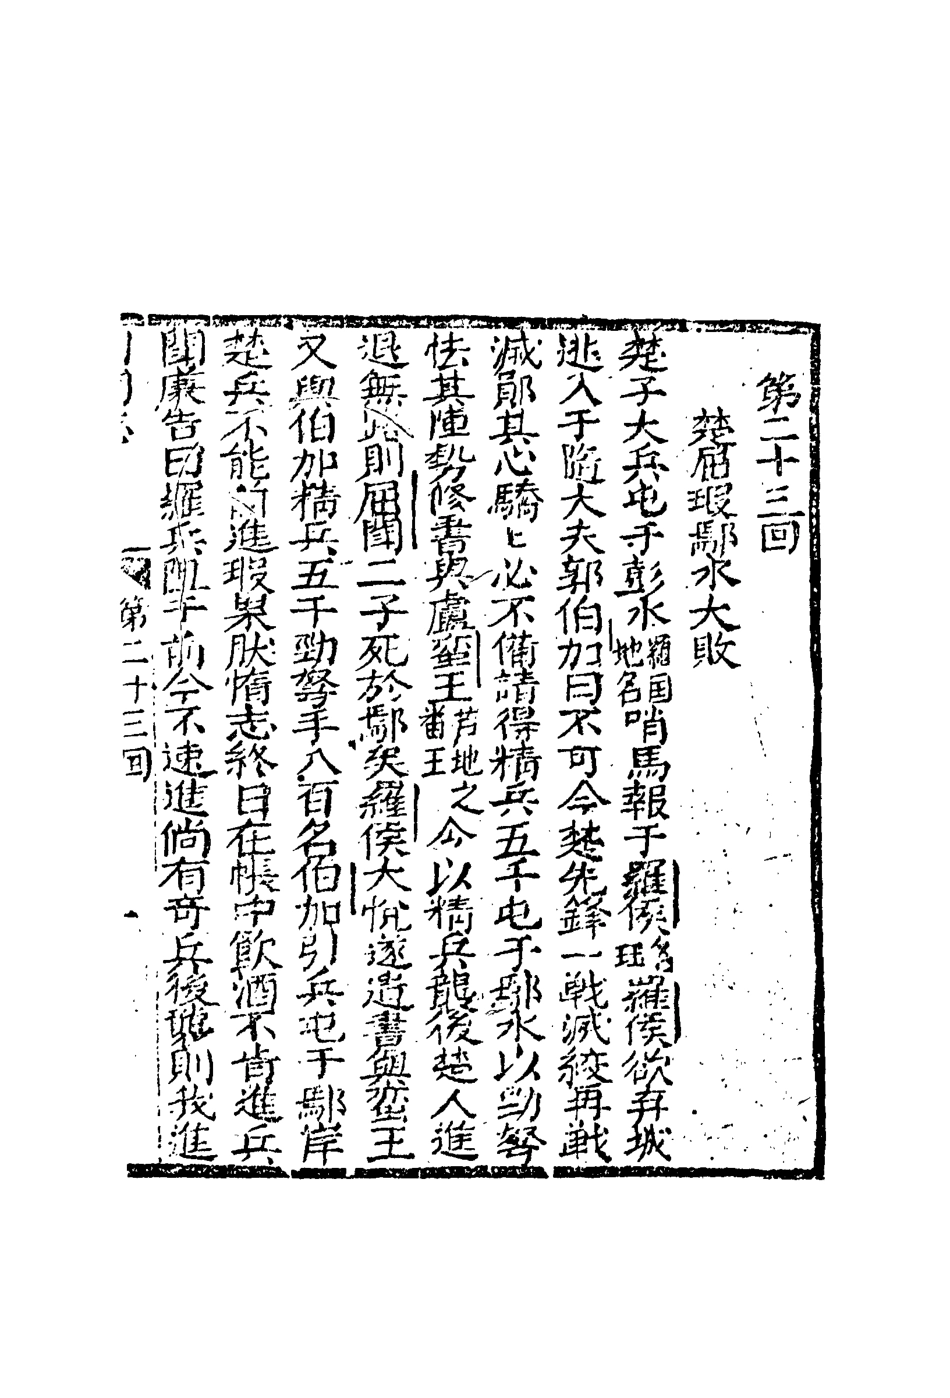 第二十三回
楚屈瑕鄢水大敗
楚子大兵屯于彭水羅国地名哨馬報于羅侯羅侯欲弃城
逃入于臨大夫郭伯加曰不可今楚先鋒一戦滅絞再戦
滅鄖其心驕〻必不備請得精兵五千屯于鄢水以勁弩
怯其陣勢修書與盧蛮王芦地番王之令以精兵襲後楚人進
退無路則屈閗二子死於鄢矣羅侯大悅遂遣書與蛮王
又與伯加精兵五千勁弩手八百名伯加引兵屯于鄢岸
楚兵不能前進瑕果肤惰志終日在帳中飲酒不肯進兵
閗廉告曰羅兵阻于前今不速進倘有奇兵後㨿則我進
列囯志
第二十三回